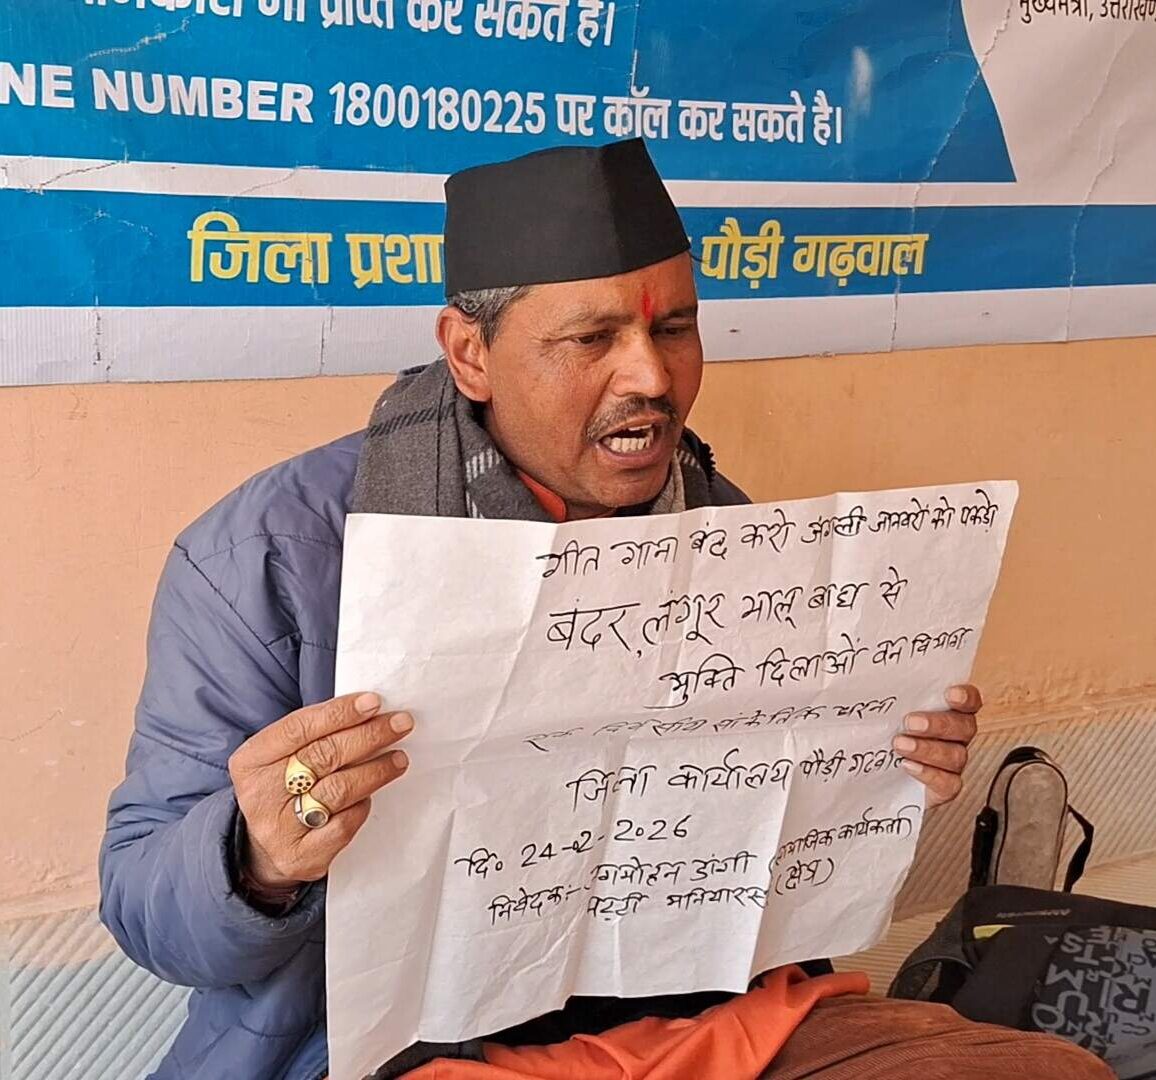 प्राप्त कर सकते हैं।
मुख्यमंत्री, उत्तराखण्ड
NE NUMBER 1800180225 पर कॉल कर सकते है।
जिला प्रशा पौड़ी गढ़वाल
गीत गाना बंद करो जंगली जानवरों को पकड़ो
बंदर, लंगूर भालू बाघ से
मुक्ति दिलाओं वन विभाग
एक दिवसीय सांकेतिक धरना
जिला कार्यालय पौड़ी गढवाल
दि० 24-02-2026
निवेदक:- जगमोहन डांगी (सामाजिक कार्यकर्ता)
पट्टी मनियारस्यूं (क्षेत्र)